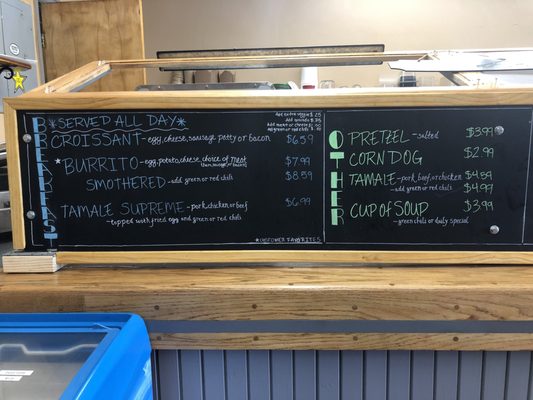 BREAKFAST
*SERVED ALL DAY*
CROISSANT-egg, cheese, sausage patty or bacon $6.59
*BURRITO-egg, potato, cheese, choice of meat $7.99
SMOTHERED-add green or red chili $8.59
TAMALE SUPREME-pork, chicken or beef $6.99
-topped with fried egg and green or red chili
*CUSTOMER FAVORITES
OTHER
PRETZEL-salted $3.99
CORN DOG $2.99
TAMALE-pork, beef, or chicken $4.59
-add green or red chili $4.97
CUP OF SOUP $3.99
-green chili or daily special